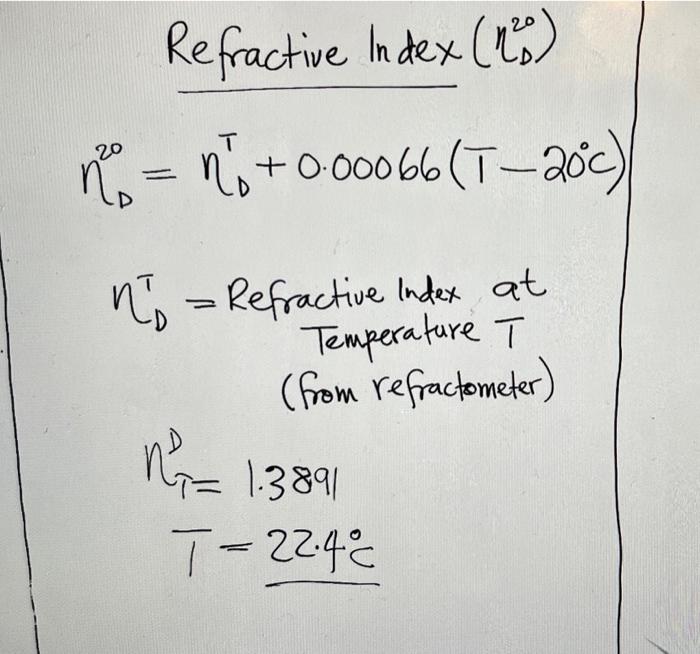 Refractive Index (n²⁰_D)
n²⁰_D = nᵀ_D + 0.00066(T – 20°C)
nᵀ_D = Refractive Index at
Temperature T
(from refractometer)
nᴰ_T = 1.3891
T = 22.4°C